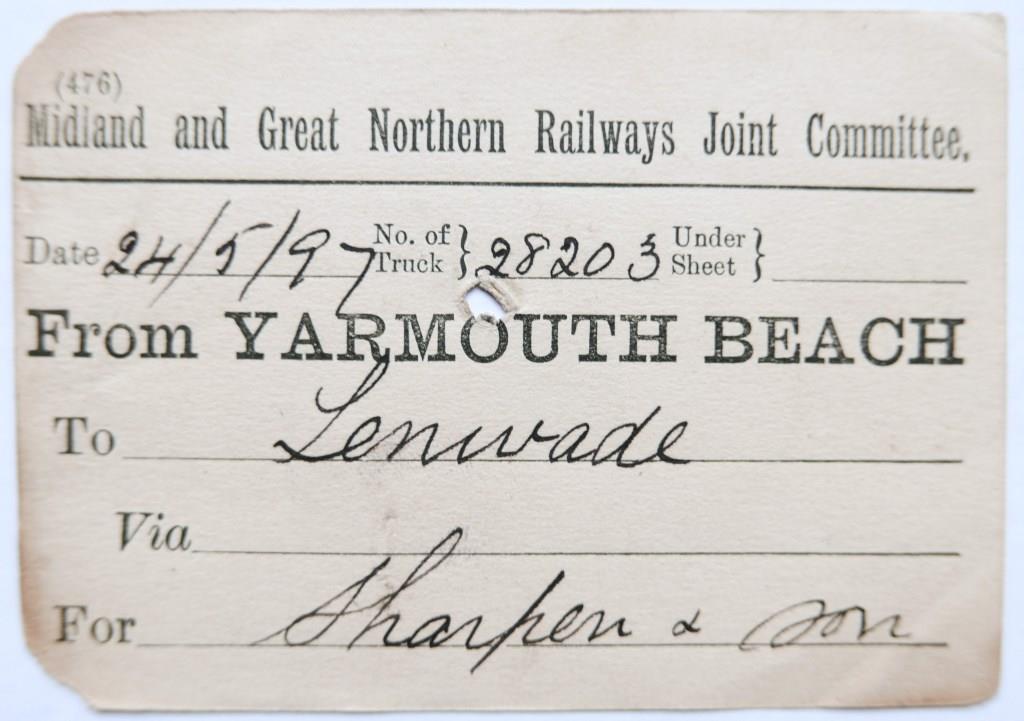 (476)
Midland and Great Northern Railways Joint Committee.
Date 24/5/97 No. of Truck } 28203 Under Sheet }
From YARMOUTH BEACH
To Lenwade
Via
For Sharpen & Son